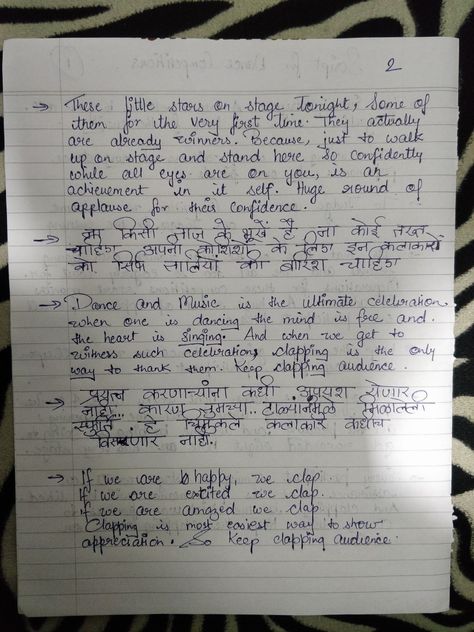 2
→ These little stars on stage tonight, Some of
them for the very first time. They actually
are already winners. Because, just to walk
up on stage and stand here so confidently
while all eyes are on you, is an
achievement in it self. Huge round of
applause for their confidence.
→ ना किसी ताज के भूखे है ना कोई तख्त
चाहिए अपनी कोशिशों के लिए इन कलाकारों
को सिर्फ तालियों की बारिश चाहिए
→ Dance and Music is the ultimate celebration
when one is dancing the mind is free and
the heart is singing. And when we get to
witness such celebration, clapping is the only
way to thank them. Keep clapping audience.
→ प्रयत्न करणाऱ्यांना कधी अपयश येणार
नाही... कारण तुमच्या टाळ्यांनमुळे मिळालेली
स्फुर्ति हे चिमुकले कलाकार कधीच
विसरणार नाही.
→ If we are happy, we clap.
If we are excited we clap.
if we are amazed we clap
Clapping is most easiest way to show
appreciation. So Keep clapping audience.